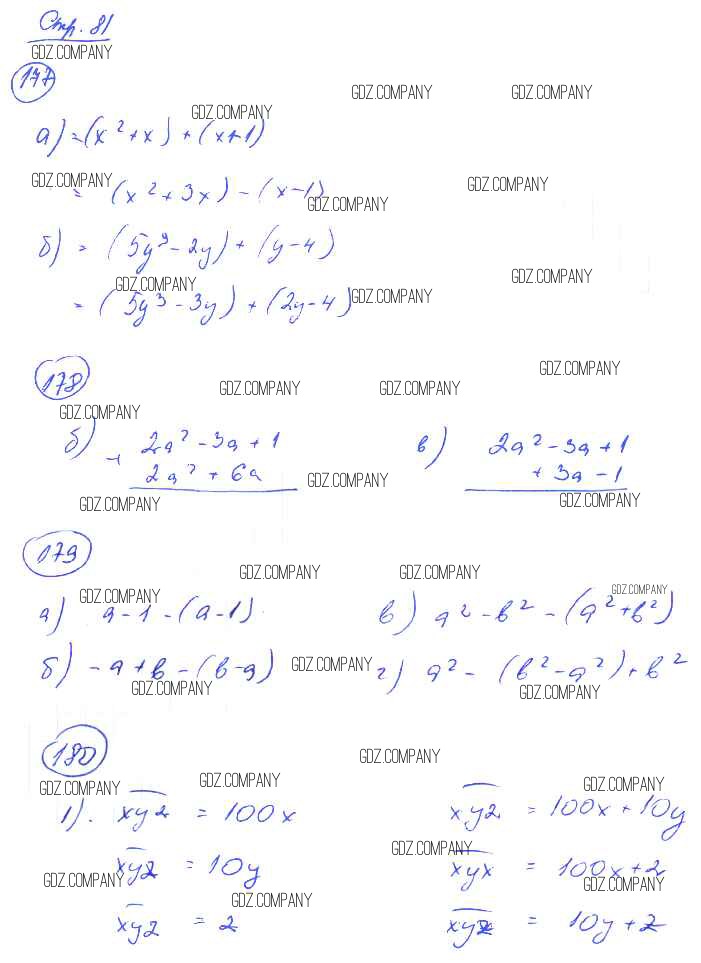 Стр. 81
GDZ.COMPANY
177
GDZ.COMPANY GDZ.COMPANY
GDZ.COMPANY
а) = (x² + x) + (x+1)
GDZ.COMPANY GDZ.COMPANY
= (x² + 3x) - (x-1)
GDZ.COMPANY
б) = (5y³ - 2y) + (y-4)
GDZ.COMPANY GDZ.COMPANY
= (5y³ - 3y) + (2y-4)
GDZ.COMPANY
178
GDZ.COMPANY
GDZ.COMPANY GDZ.COMPANY
GDZ.COMPANY
б) + 2a² - 3a + 1
2a² + 6a
в) 2a² - 3a + 1
+ 3a - 1
GDZ.COMPANY
GDZ.COMPANY GDZ.COMPANY
179
GDZ.COMPANY GDZ.COMPANY
GDZ.COMPANY GDZ.COMPANY
а) a - 1 - (a-1)
в) a² - b² - (a² + b²)
б) -a + b - (b-a)
GDZ.COMPANY
г) a² - (b² - a²) + b²
GDZ.COMPANY GDZ.COMPANY
180
GDZ.COMPANY
GDZ.COMPANY GDZ.COMPANY GDZ.COMPANY
1). xyz = 100x
xyz = 100x + 10y
GDZ.COMPANY
xyz = 10y
xyx = 100x + z
GDZ.COMPANY GDZ.COMPANY
GDZ.COMPANY
xyz = z
xyz = 10y + z